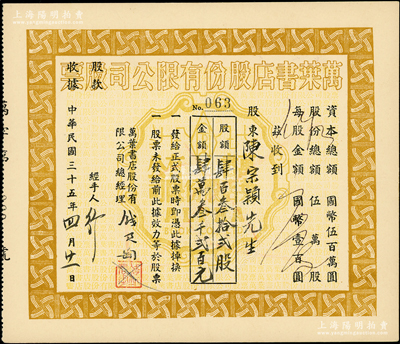 萬葉書店股份有限公司股票
股款
收據
No. 063
資本總額 國幣伍百萬圓
股份總額 伍萬股
每股金額 國幣壹百圓
茲收到
股東陳宗頴先生
股額 肆百叁拾弍股
金額 肆萬叁千弍百元
一 發給正式股票時即憑此據掉換
一 股票未發給前此據效力等於股票
萬葉書店股份有
限公司總經理 錢君匋
經手人
中華民國三十五年四月廿一日
上海陽明拍賣
www.yangmingauction.com